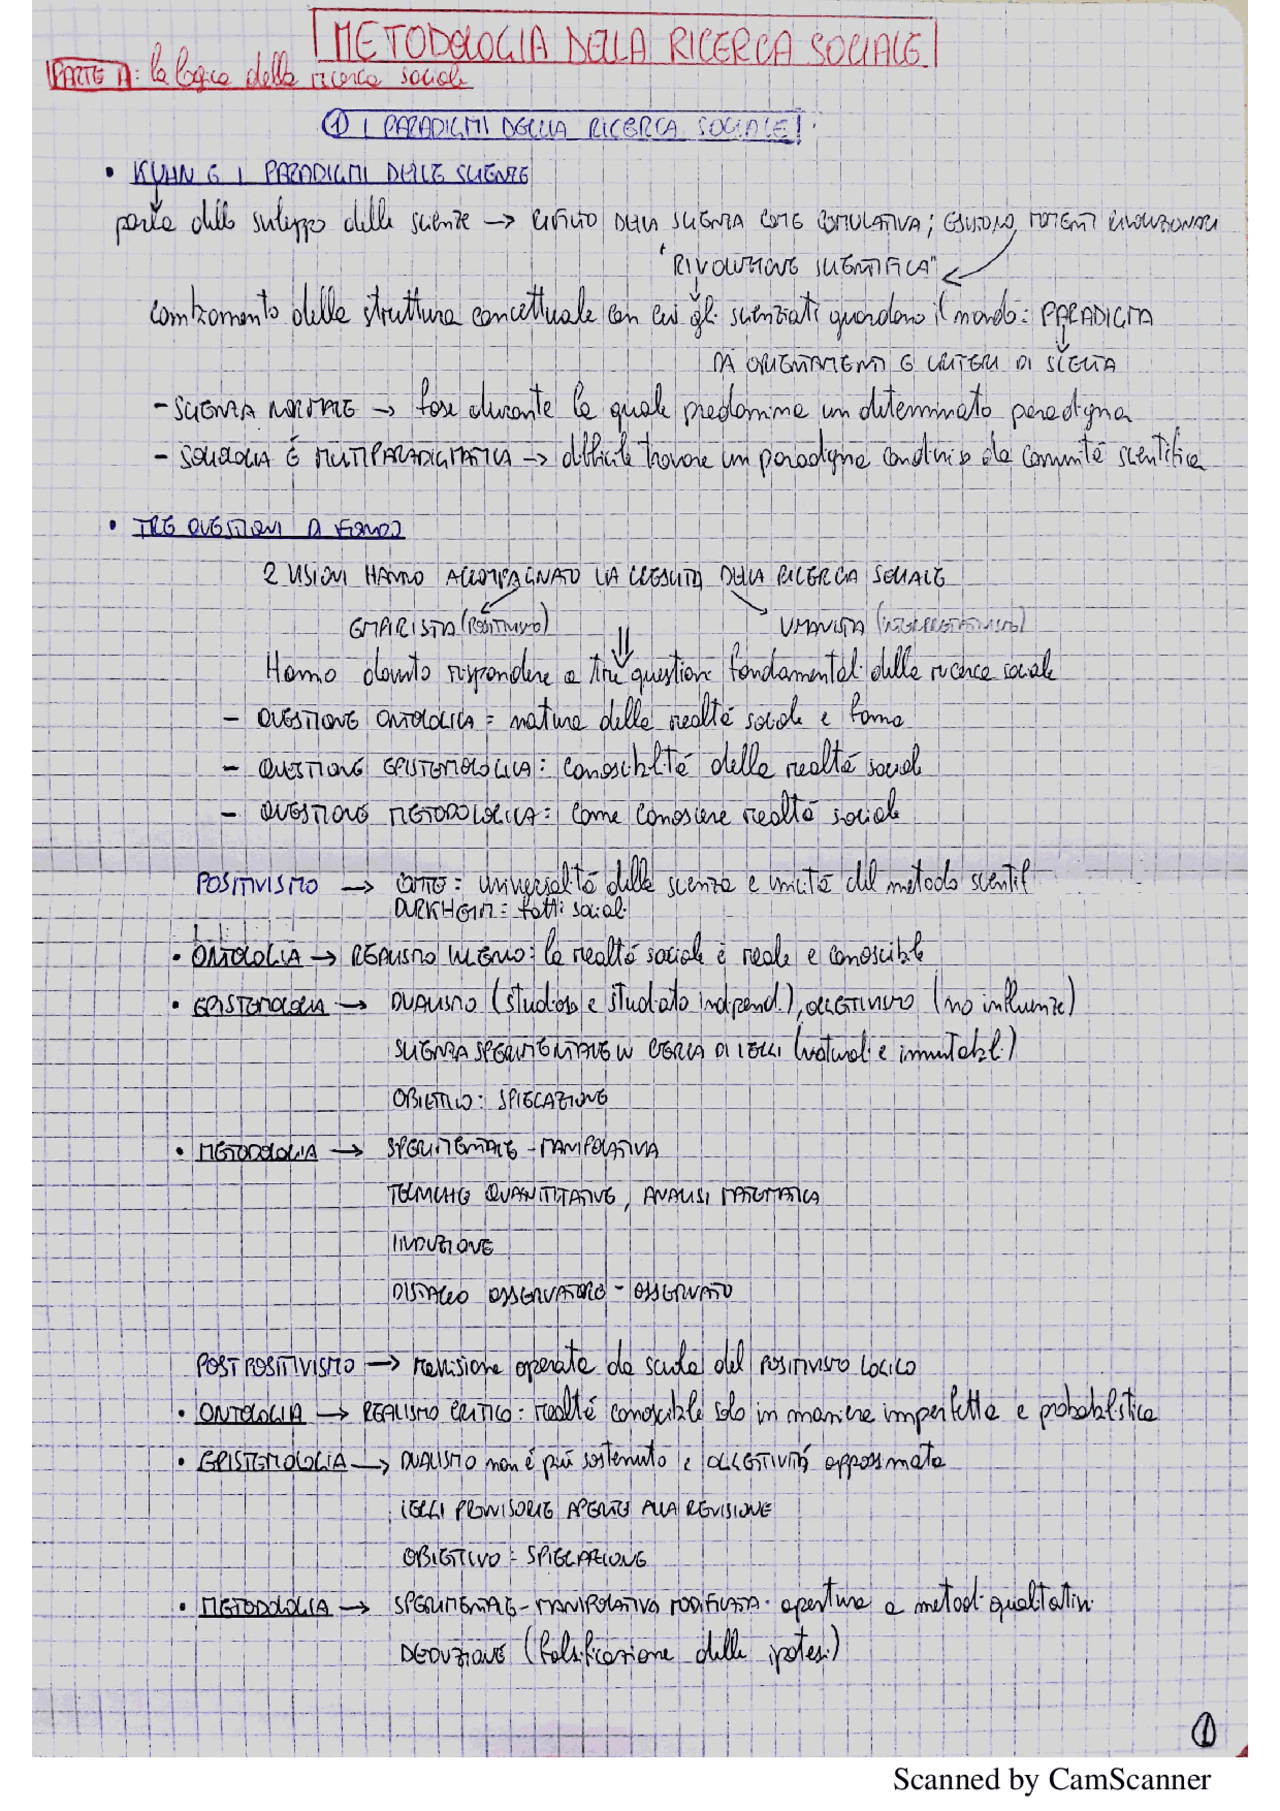 METODOLOGIA DELLA RICERCA SOCIALE
PARTE A: la logica della ricerca sociale
① I PARADIGMI DELLA RICERCA SOCIALE
• KUHN E I PARADIGMI DELLE SCIENZE
parla dello sviluppo delle scienze → RIFIUTO DELLA SCIENZA COME COMULATIVA; ESISTONO MOMENTI RIVOLUZIONARI
"RIVOLUZIONE SCIENTIFICA"
cambiamento della struttura concettuale con cui gli scienziati guardano il mondo: PARADIGMA
DÀ ORIENTAMENTI E CRITERI DI SCELTA
- SCIENZA NORMALE → fase durante la quale predomina un determinato paradigma
- SOCIOLOGIA È MULTIPARADIGMATICA → difficile trovare un paradigma condiviso da comunità scientifica
• TRE QUESTIONI DI FONDO
2 VISIONI HANNO ACCOMPAGNATO LA CRESCITA DELLA RICERCA SOCIALE
EMPIRISTA (POSITIVISMO) UMANISTA (INTERPRETATIVISMO)
Hanno dovuto rispondere a tre questioni fondamentali della ricerca sociale
- QUESTIONE ONTOLOGICA = natura della realtà sociale e forma
- QUESTIONE EPISTEMOLOGICA: conoscibilità della realtà sociale
- QUESTIONE METODOLOGICA: come conoscere realtà sociale
POSITIVISMO → COMTE: universalità della scienza e unicità del metodo scientif
DURKHEIM = fatti sociali
• ONTOLOGIA → REALISMO INGENUO: la realtà sociale è reale e conoscibile
• EPISTEMOLOGIA → DUALISMO (studioso e studiato independ.), OGGETTIVISMO (no influenze)
SCIENZA SPERIMENTALE IN CERCA DI LEGGI (naturali e immutabili)
OBIETTIVO: SPIEGAZIONE
• METODOLOGIA → SPERIMENTALE - MANIPOLATIVA
TECNICHE QUANTITATIVE, ANALISI MATEMATICA
INDUZIONE
DISTACCO OSSERVATORE - OSSERVATO
POSTPOSITIVISMO → revisione operata da scuola del POSITIVISMO LOGICO
• ONTOLOGIA → REALISMO CRITICO: realtà conoscibile solo in maniera imperfetta e probabilistica
• EPISTEMOLOGIA → DUALISMO non è più sostenuto e OGGETTIVITÀ approssimata
LEGGI PROVVISORIE APERTE ALLA REVISIONE
OBIETTIVO = SPIEGAZIONE
• METODOLOGIA → SPERIMENTALE - MANIPOLATIVA MODIFICATA. apertura a metodi qualitativi
DEDUZIONE (falsificazione delle ipotesi)
①
Scanned by CamScanner